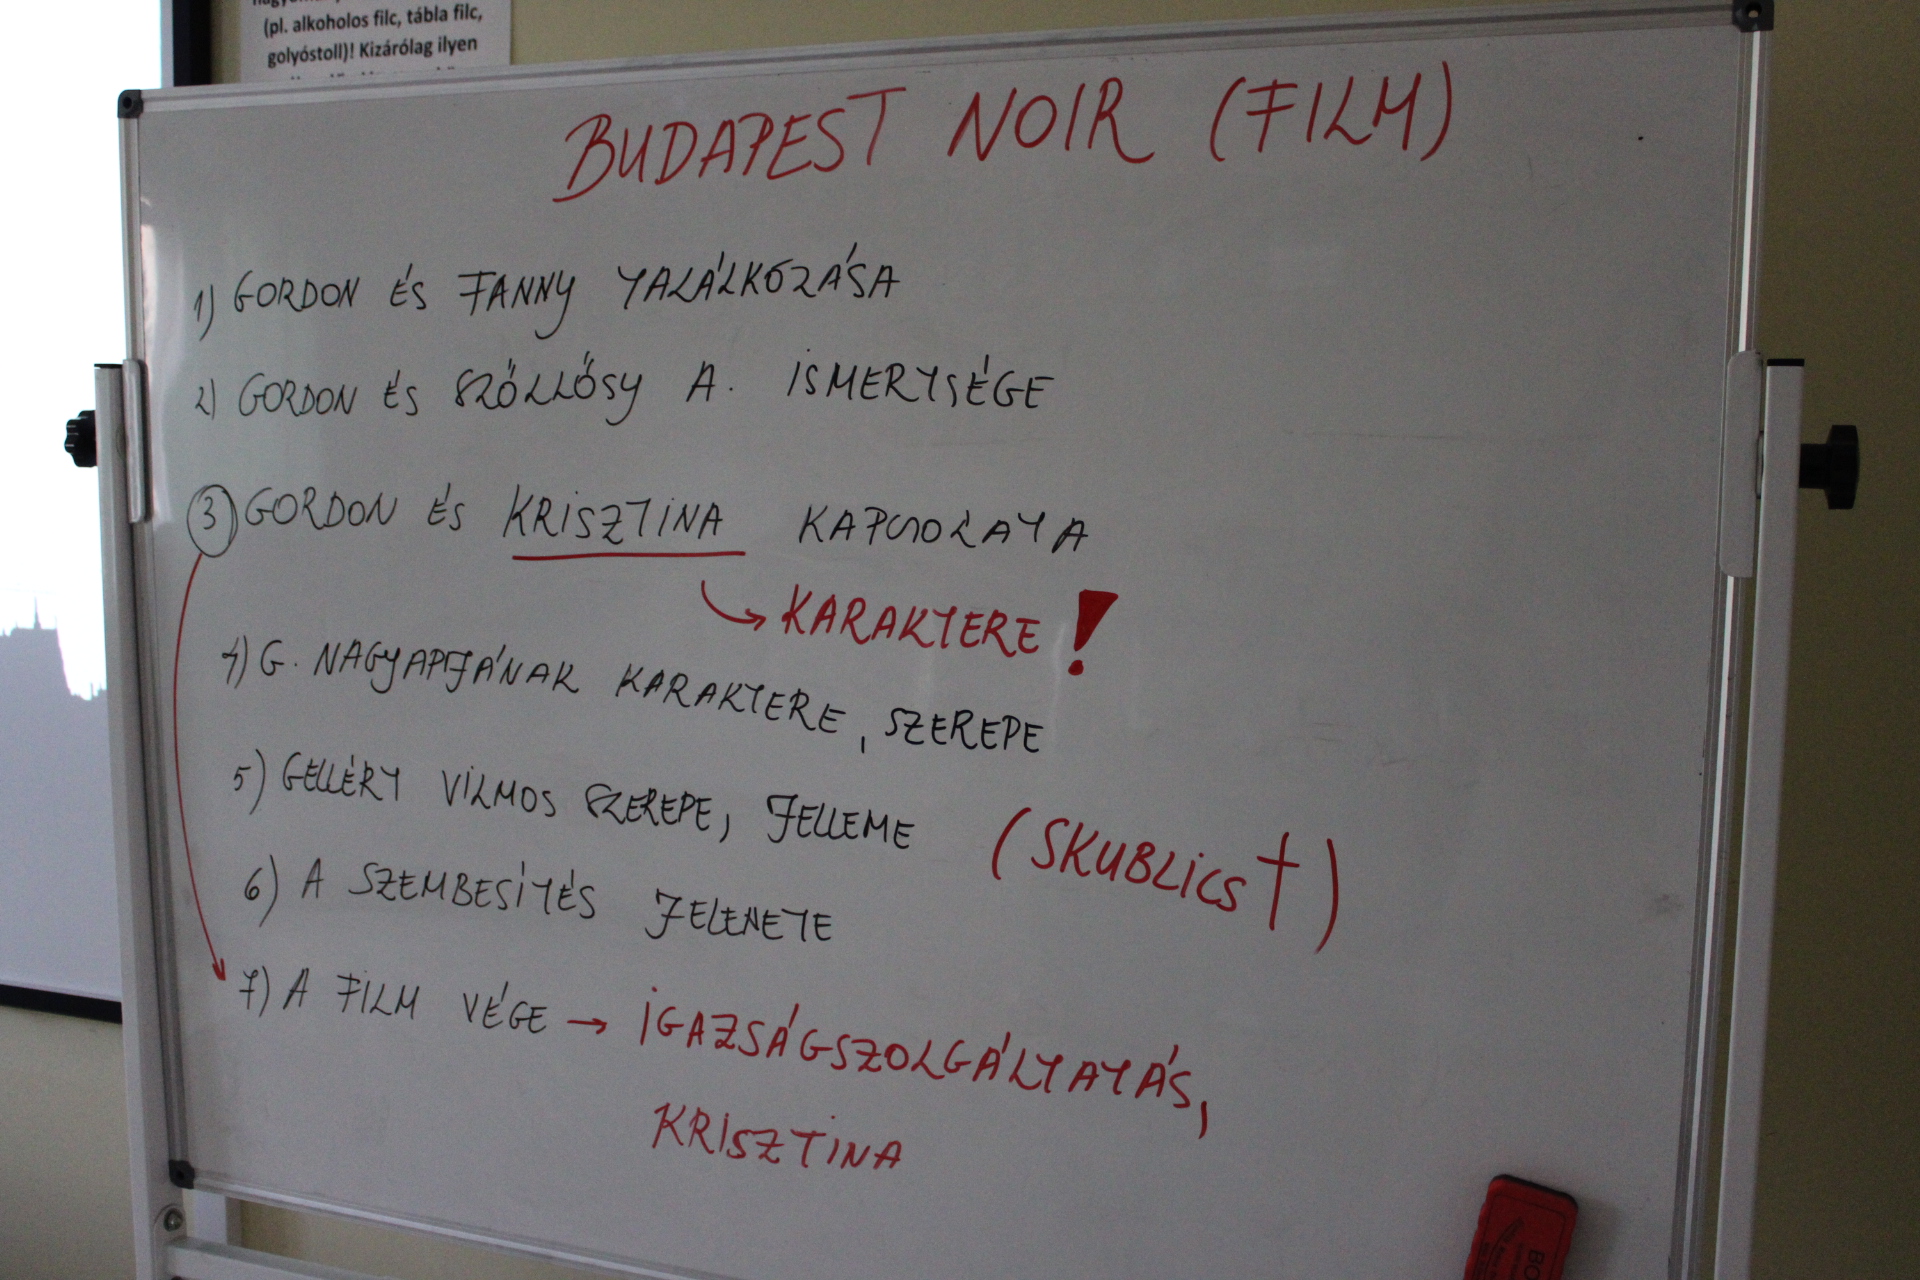 (pl. alkoholos filc, tábla filc,
golyóstoll)! Kizárólag ilyen
BUDAPEST NOIR (FILM)
1) GORDON ÉS FANNY TALÁLKOZÁSA
2) GORDON ÉS SZŐLLŐSY A. ISMERTSÉGE
3 GORDON ÉS KRISZTINA KAPCSOLATA
→ KARAKTERE!
4) G. NAGYAPJÁNAK KARAKTERE, SZEREPE
5) GELLÉRT VILMOS SZEREPE, JELLEME (SKUBLICS †)
6) A SZEMBESÍTÉS JELENETE
7) A FILM VÉGE → IGAZSÁGSZOLGÁLTATÁS,
KRISZTINA